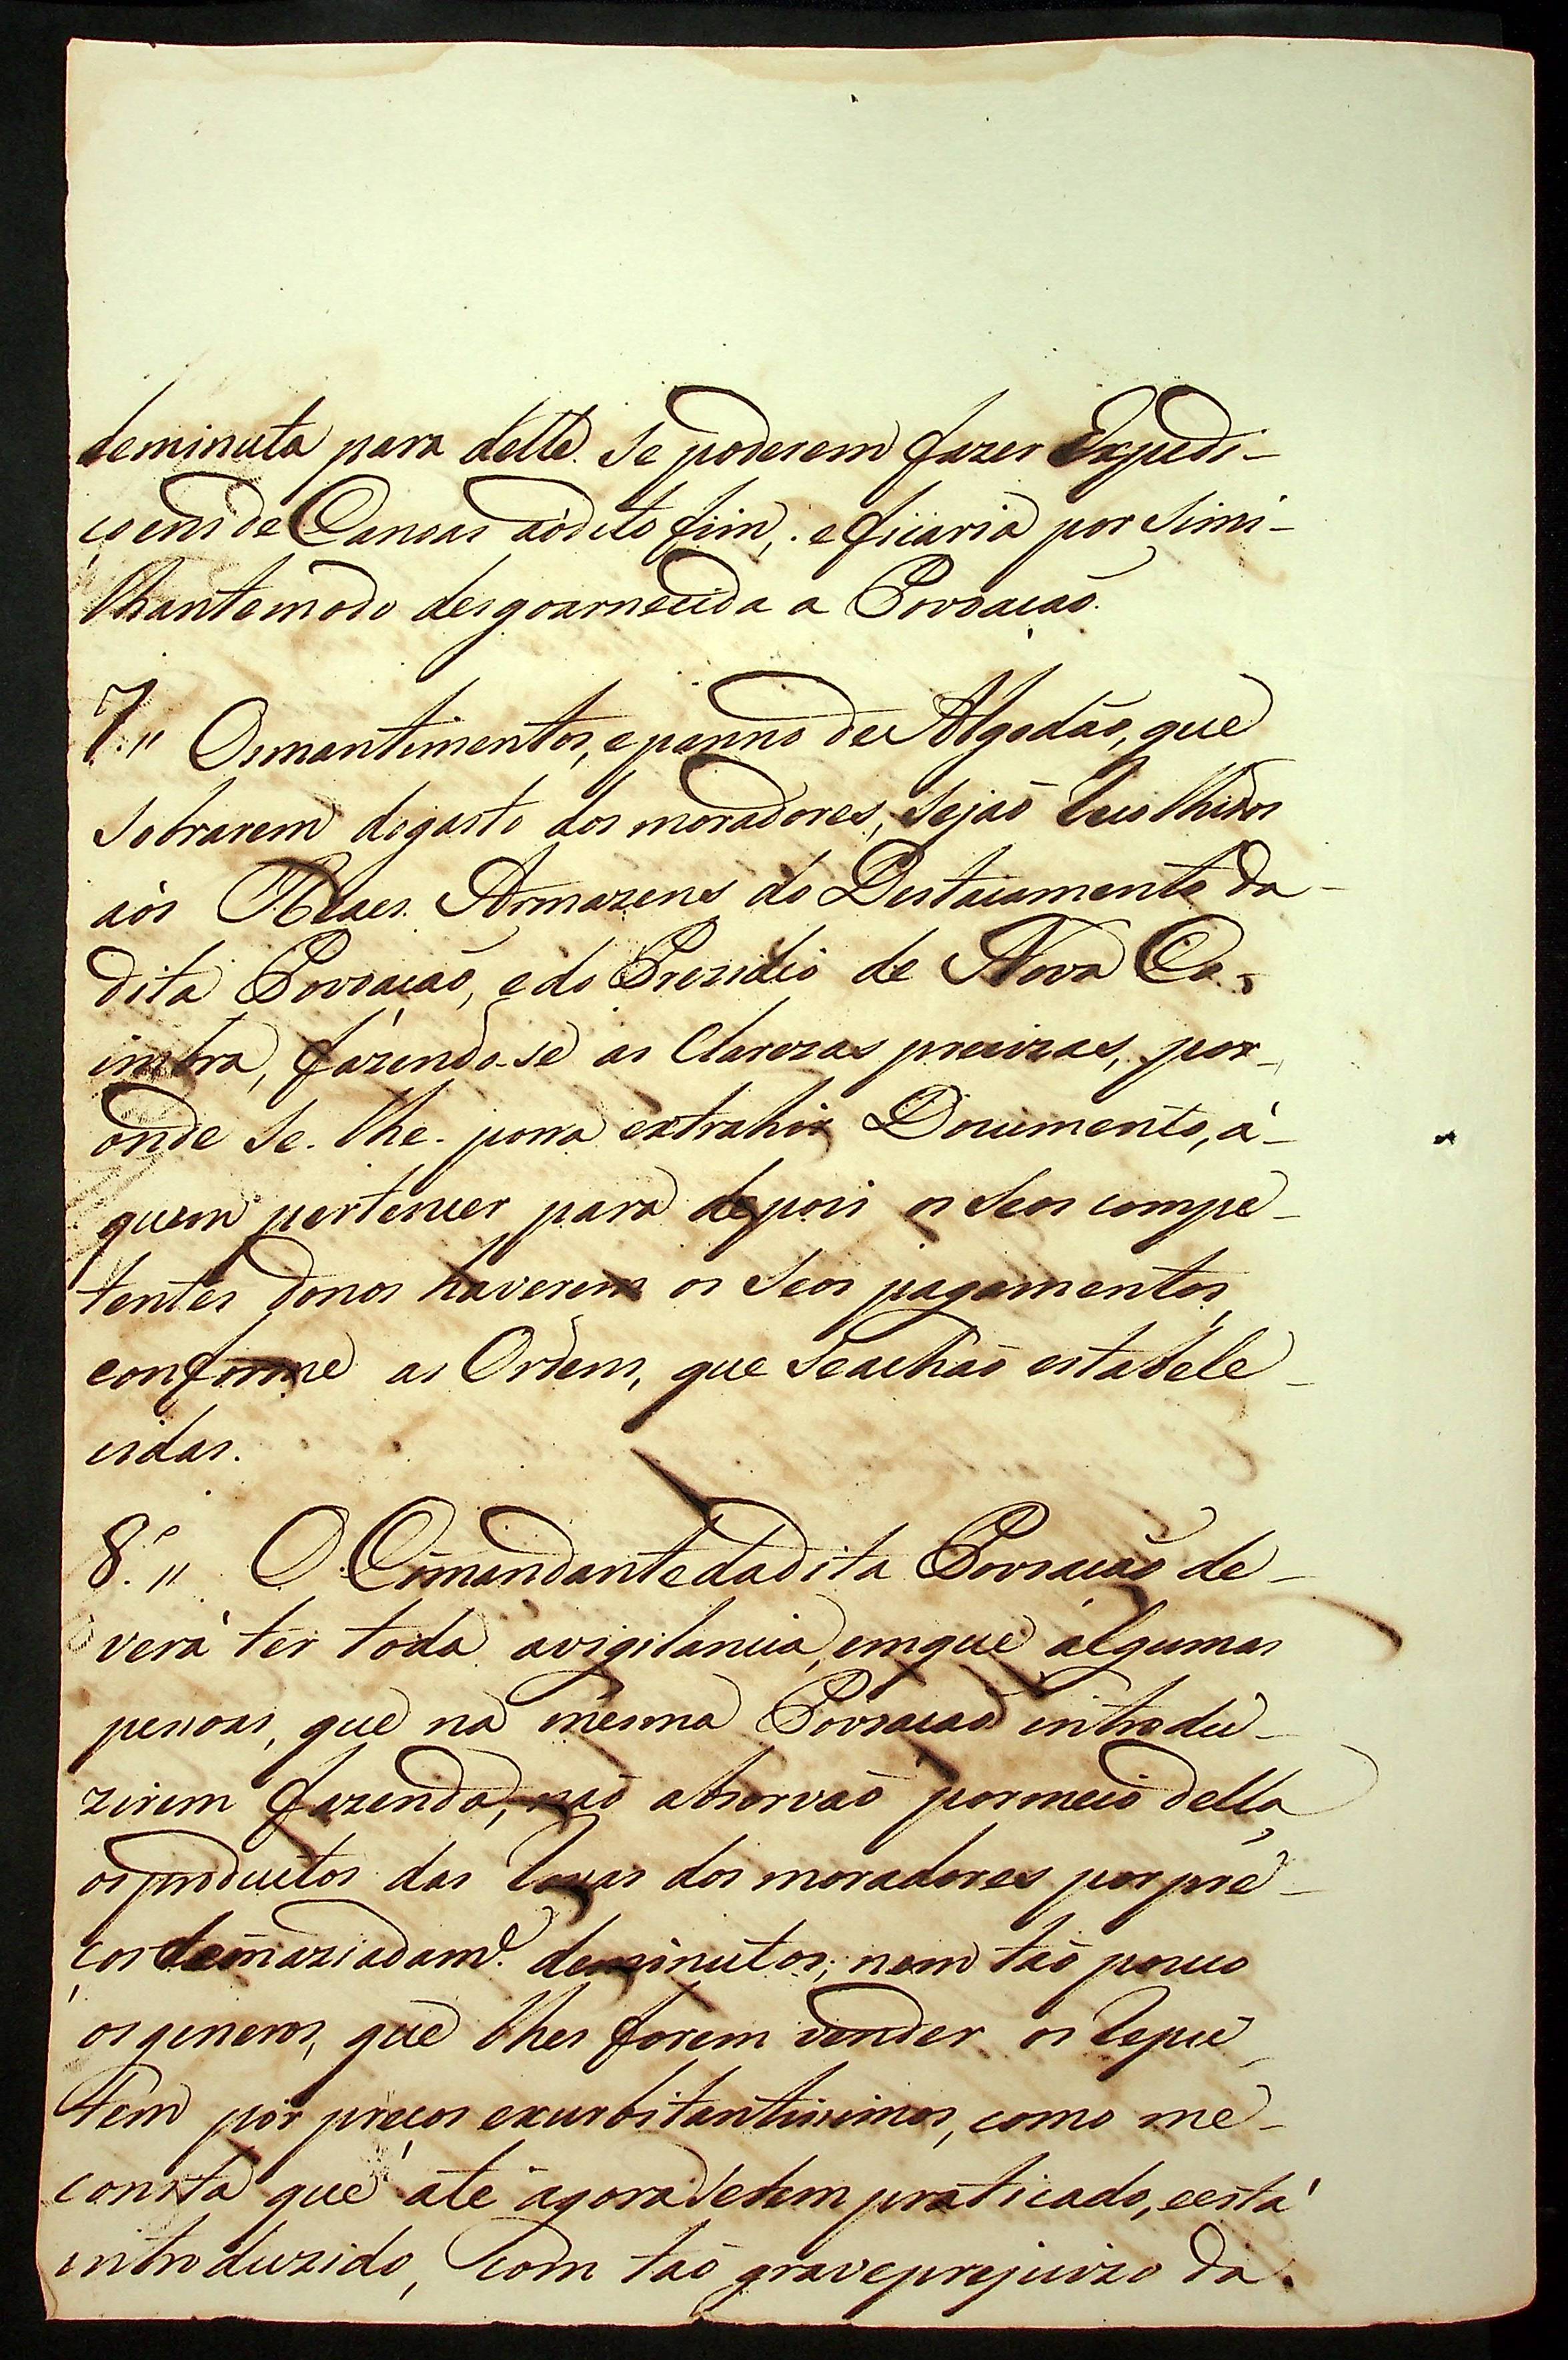 deminuta para delle se poderem fazer Expedi-
çoens de Canoas aò dito fim, e ficaria por simi-
lhante modo desgoarnecida a Povoação.
7.º,, Os mantimentos, e panno de Algodão, que
sobrarem do gasto dos moradores, sejaõ recolhidos
aòs Reaes Armazens do Destacamento da
dita Povoação, e do Prezidio de Nova Co-
imbra, fazendo-se as Clarezas precizas, por-
onde se lhe possa extrahir Documento, à-
quem pertencer para depois os seos compe-
tentes donos haverem os seos pagamentos,
conforme as Ordens, que se achão estabele-
cidas.
8.º,, O Comandante da dita Povoação de-
verá ter toda a vigilancia, em que algumas
pessoas, que na mesma Povoação introdu-
zirem fazenda, naõ absorvaõ por meio della,
os productos das roças dos moradores por pre-
ços demaziadam.e deminutos; nem taõ pouco
os generos, que lhes forem vender os repu-
tem por preços exurbitantissimos, como me-
consta que até agora se tem praticado, e está
introduzido, com taõ grave prejuizo da